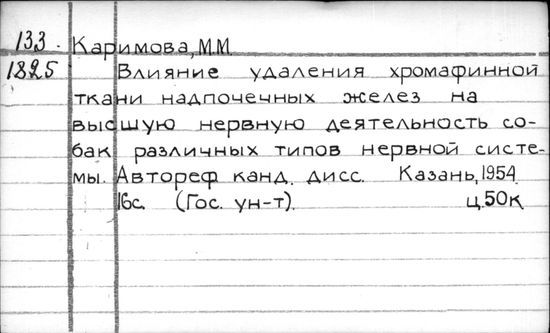 133. Каримова, М.М.
1825 Влияние удаления хромафинной
ткани надпочечных желез на
высшую нервную деятельность со-
бак различных типов нервной систе-
мы. Автореф канд. дисс. Казань, 1954
16с. (Гос. ун-т). ц.50к